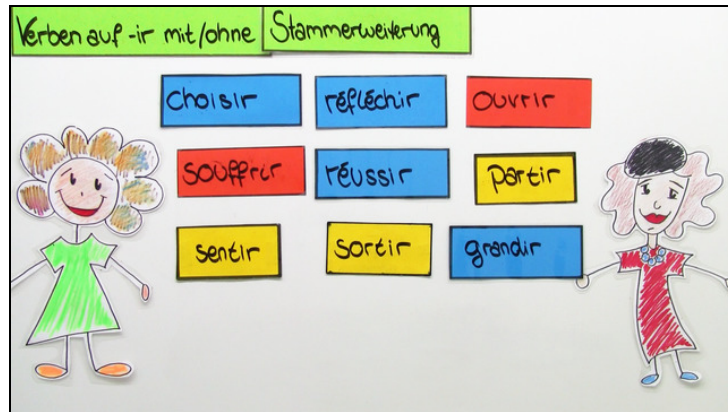 Verben auf -ir mit/ohne Stammerweiterung
choisir réfléchir ouvrir
souffrir réussir partir
sentir sortir grandir